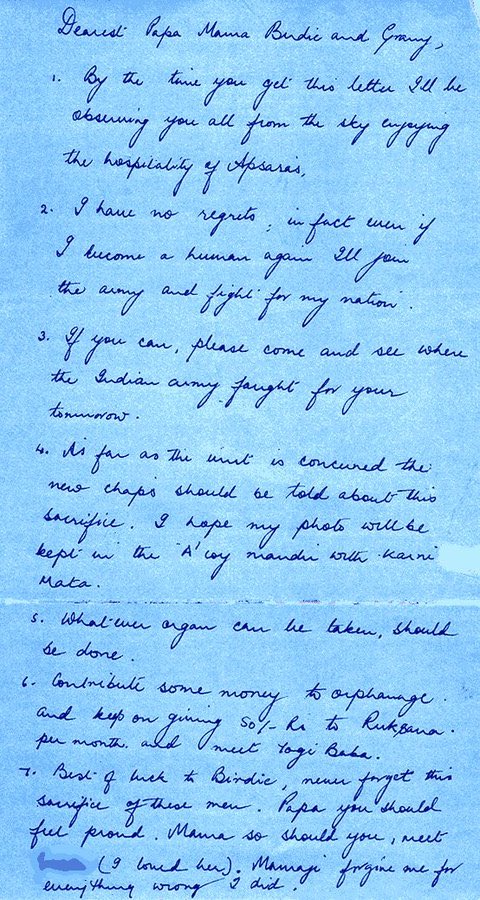 Dearest Papa Mama Birdie and Grany,
1. By the time you get this letter I'll be
observing you all from the sky enjoying
the hospitality of Apsaras,
2. I have no regrets, in fact even if
I become a human again I'll join
the army and fight for my nation.
3. If you can, please come and see where
the Indian army faught for your
tommorow.
4. As far as the unit is concured the
new chaps should be told about this
sacrifice. I hope my photo will be
kept in the 'A' coy mandir with Karni
Mata.
5. What ever organ can be taken, should
be done.
6. Contribute some money to orphanage
and keep on giving 50/- Rs to Ruksana
per month. and meet Yogi Baba.
7. Best of luck to Birdie, never forget this
sacrifice of these men. Papa you should
feel proud. Mama so should you, meet
(I loved her). Mamaji forgive me for
everything wrong I did.